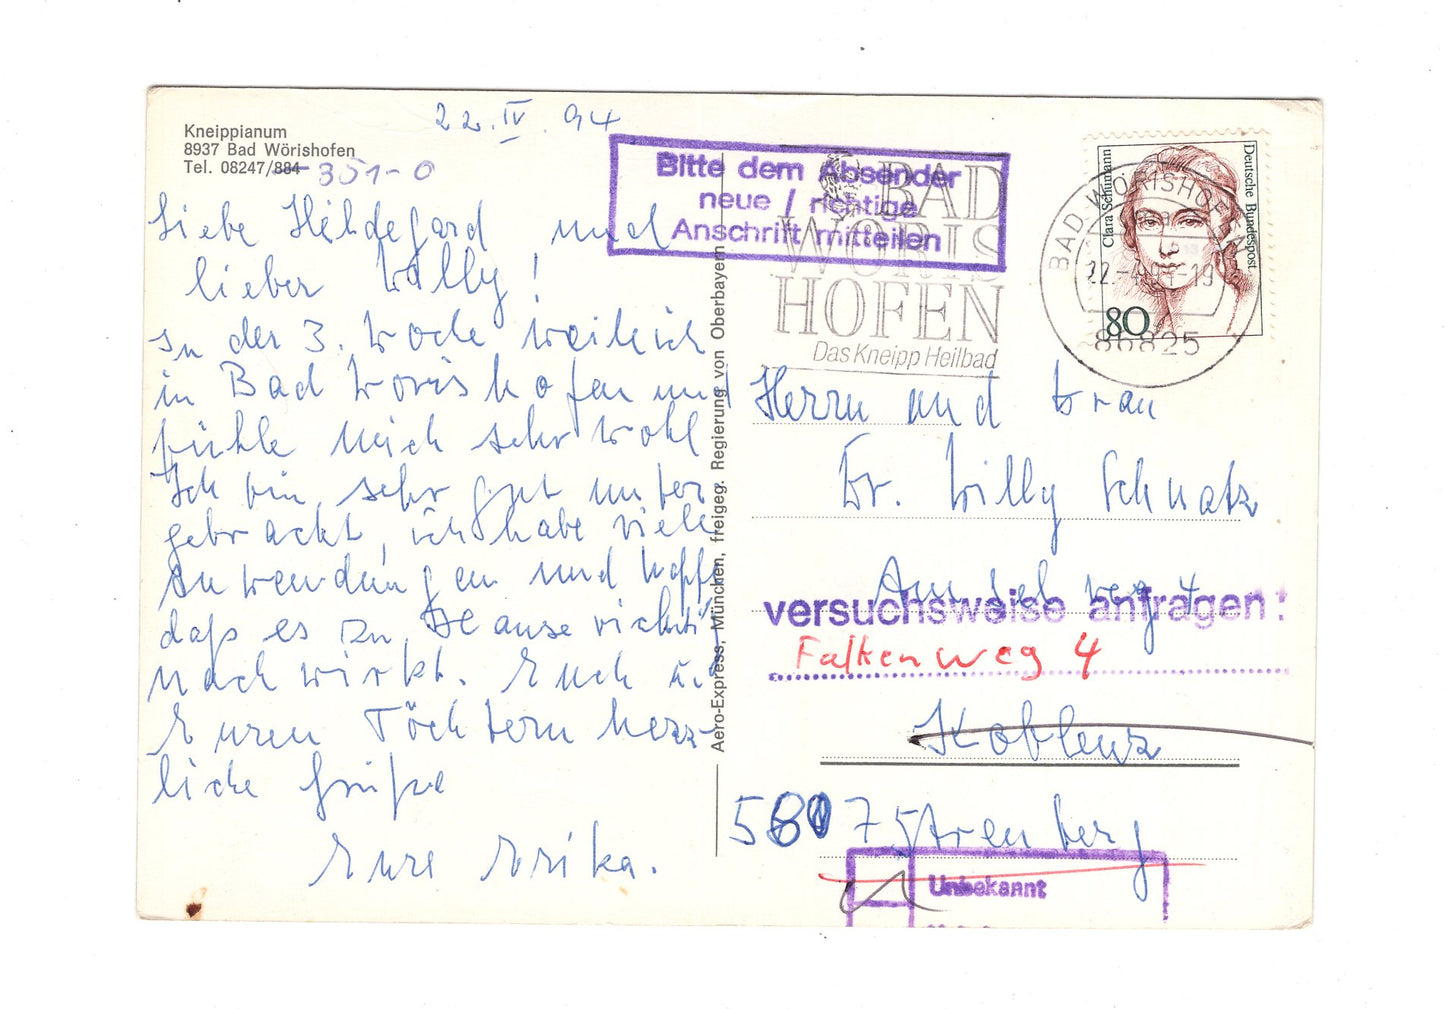 Kneippianum
8937 Bad Wörishofen
Tel. 08247/884 351-0
22. IV. 94
Liebe Hildegard und
lieber Willy!
In der 3. Woche weile ich
in Bad Wörishofen und
fühle mich sehr wohl
Ich bin sehr gut unter
gebracht, ich habe viele
Anwendungen und hoffe
daß es zu Hause richtig
nachwirkt. Euch u.
Euren Töchtern herz-
liche Grüße
Eure Erika.
Aero-Express, München, freigeg. Regierung von Oberbayern
Bitte dem Absender
neue / richtige
Anschrift mitteilen
BAD
WÖRIS
HOFEN
Das Kneipp Heilbad
BAD WÖRISHOFEN
22.-4.94-19
86825
Clara Schumann
Deutsche Bundespost
80
Herrn und Frau
Dr. Willy Schnatz
Amselweg 4
versuchsweise anfragen!
Falkenweg 4
Koblenz
56075 Arenberg
Unbekannt